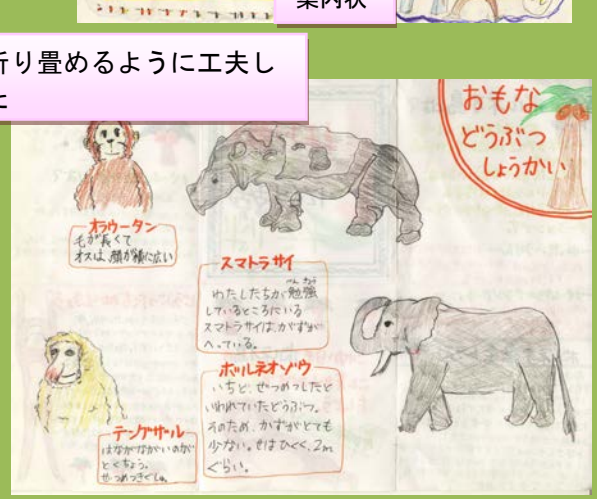 案内状
折り畳めるように工夫し
た
おもな
どうぶつ
しょうかい
オラウータン
毛が長くて
オスは、顔が横に広い
スマトラサイ
べんきょう
わたしたちが勉強
しているところにいる
スマトラサイは、かずが
へっている。
ボルネオゾウ
いちど、ぜつめつしたと
いわれていたどうぶつ。
そのため、かずがとても
少ない。せはひくく、2m
ぐらい。
テングザル
はながながいのが
とくちょう。
ぜつめつきぐしゅ。